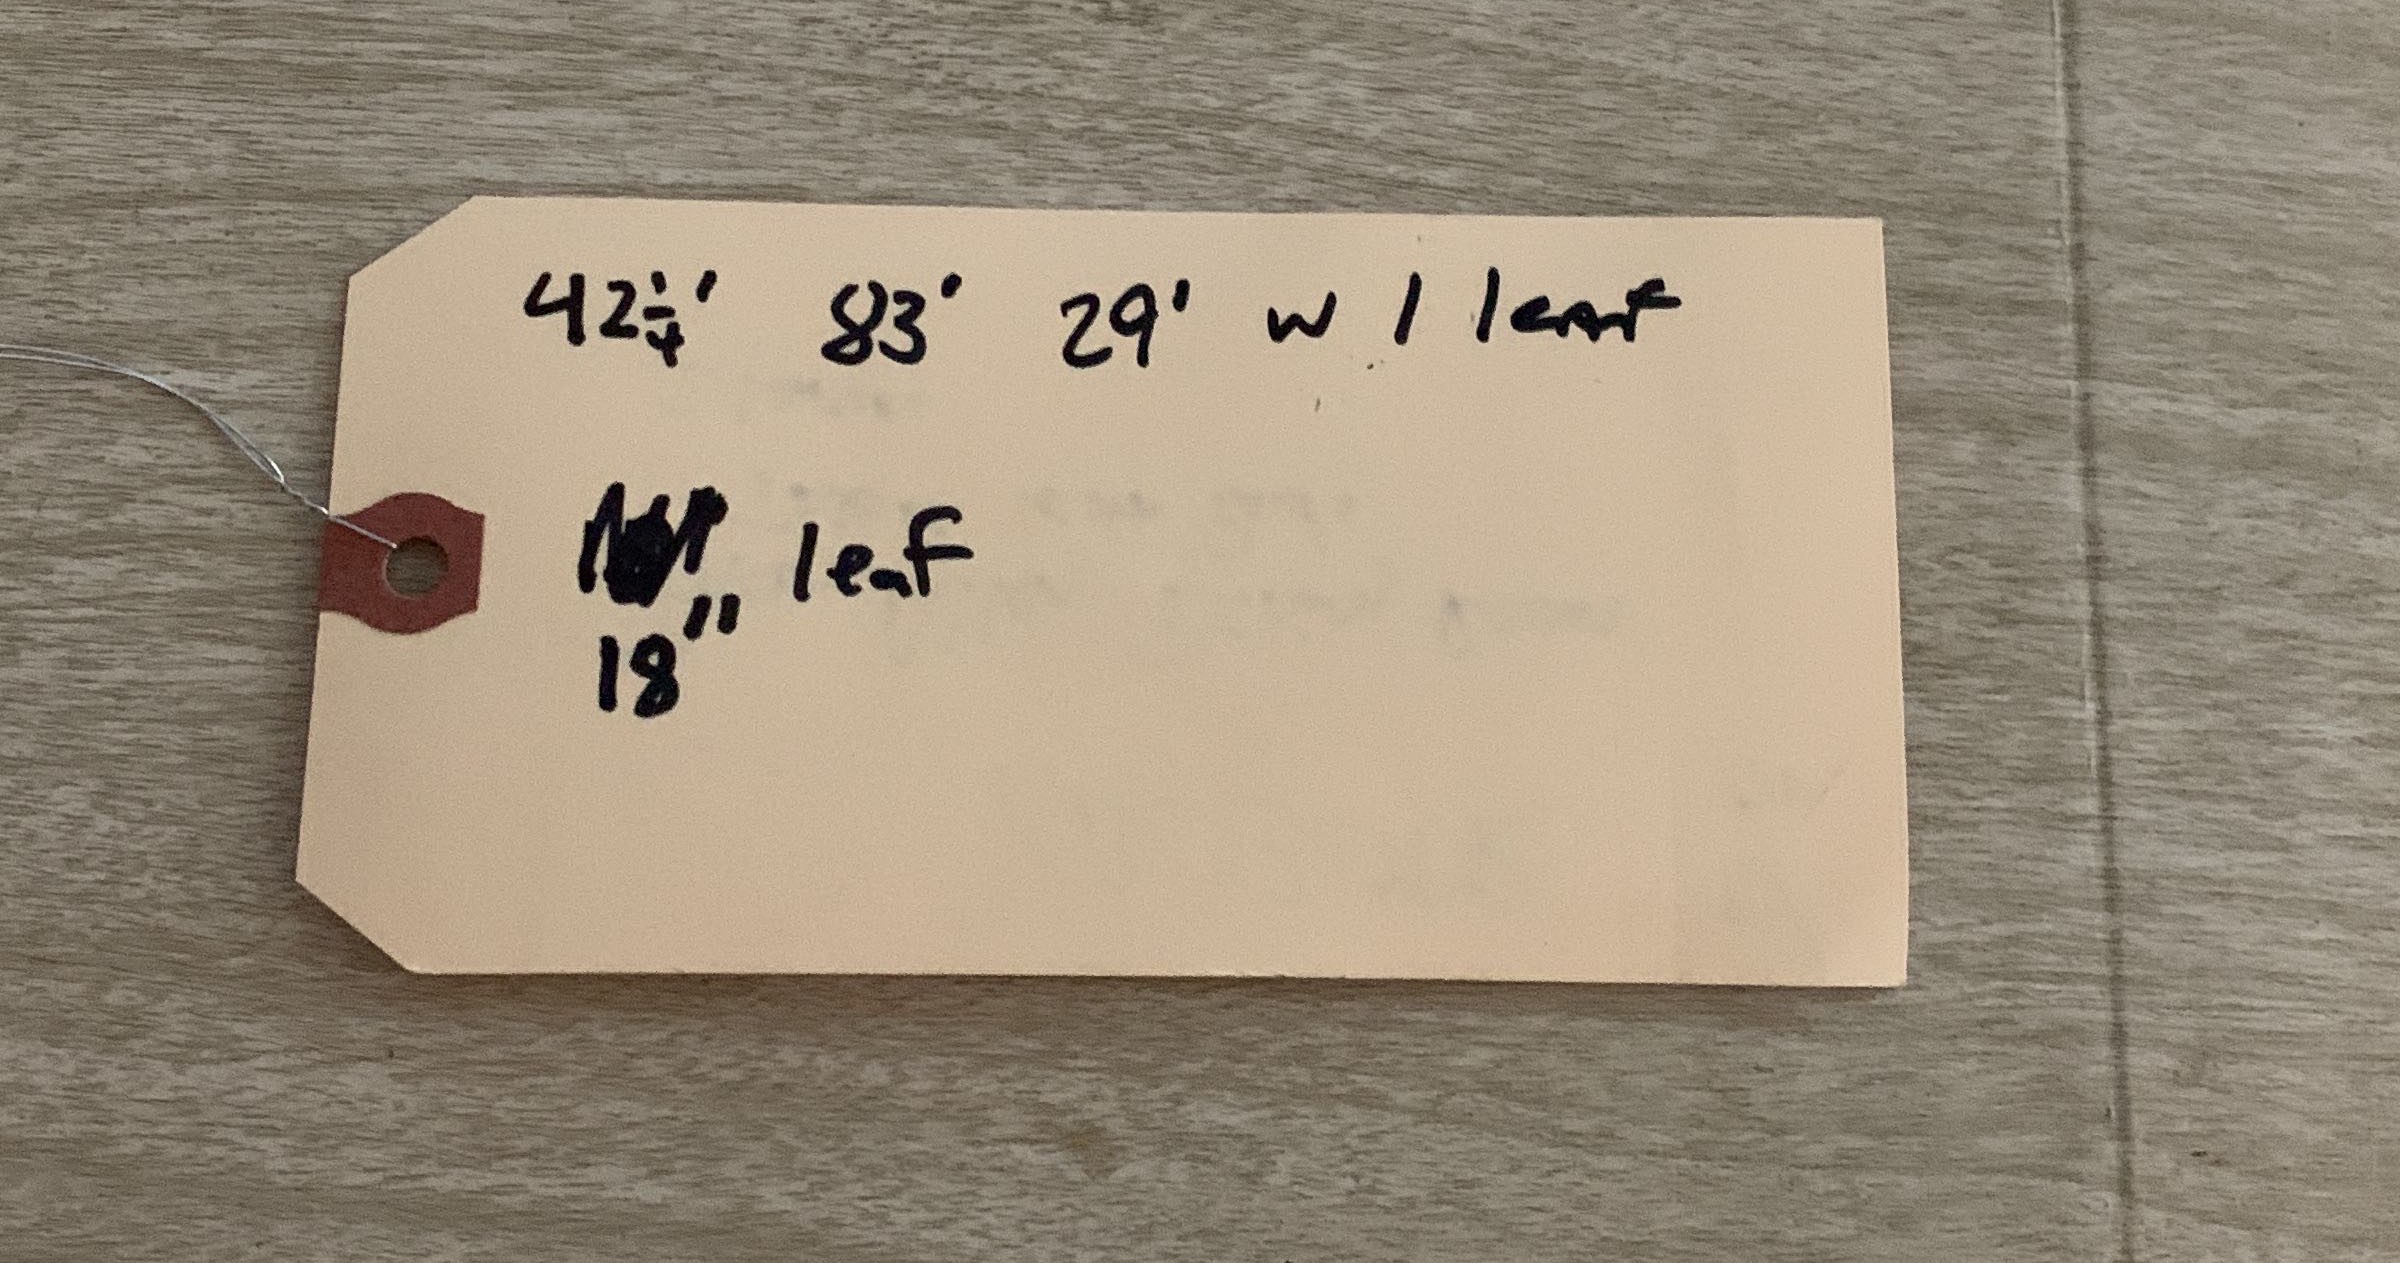 42¼' 83' 29' w 1 leaf
leaf
18"